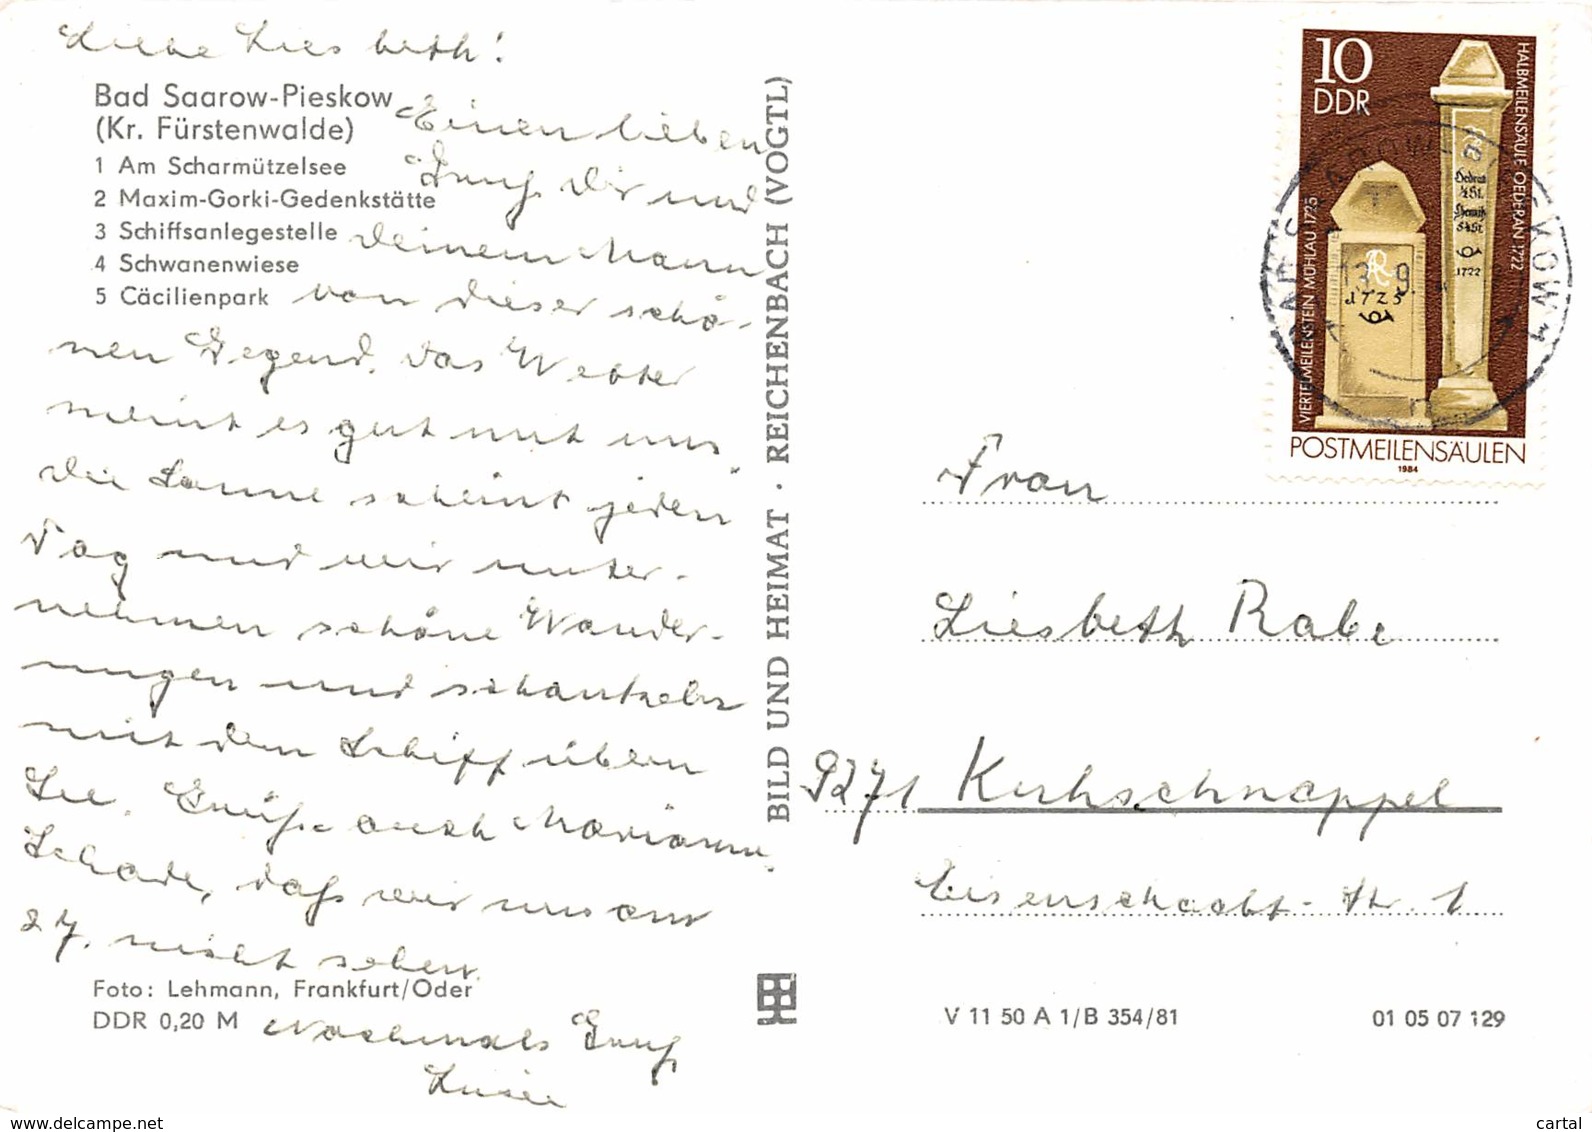 Liebe Liesbeth!
Bad Saarow-Pieskow
(Kr. Fürstenwalde)
1 Am Scharmützelsee
2 Maxim-Gorki-Gedenkstätte
3 Schiffsanlegestelle
4 Schwanenwiese
5 Cäcilienpark
Einen lieben
Gruß Dir und
Deinem Mann
von dieser schö-
nen Gegend. Das Wetter
meint es gut mit uns
die Sonne scheint jeden
Tag und wir unter-
nehmen schöne Wander-
ungen und schaukeln
mit dem Schiff übern
See. Grüße auch Marianne.
Schade, daß wir uns am
27. nicht sehen.
Foto: Lehmann, Frankfurt/Oder
DDR 0,20 M
Nochmals Gruß
Luise
BILD UND HEIMAT · REICHENBACH (VOGTL)
10
DDR
HALBMEILENSÄULE OEDERAN 1722
VIERTELMEILENSTEIN MÜHLAU 1725
AR
1725
1722
POSTMEILENSÄULEN
1984
13.9.
Frau
Liesbeth Rabe
9271 Kuhschnappel
Eisenschacht-Str. 1
V 11 50 A 1/B 354/81
01 05 07 129
www.delcampe.net
cartal